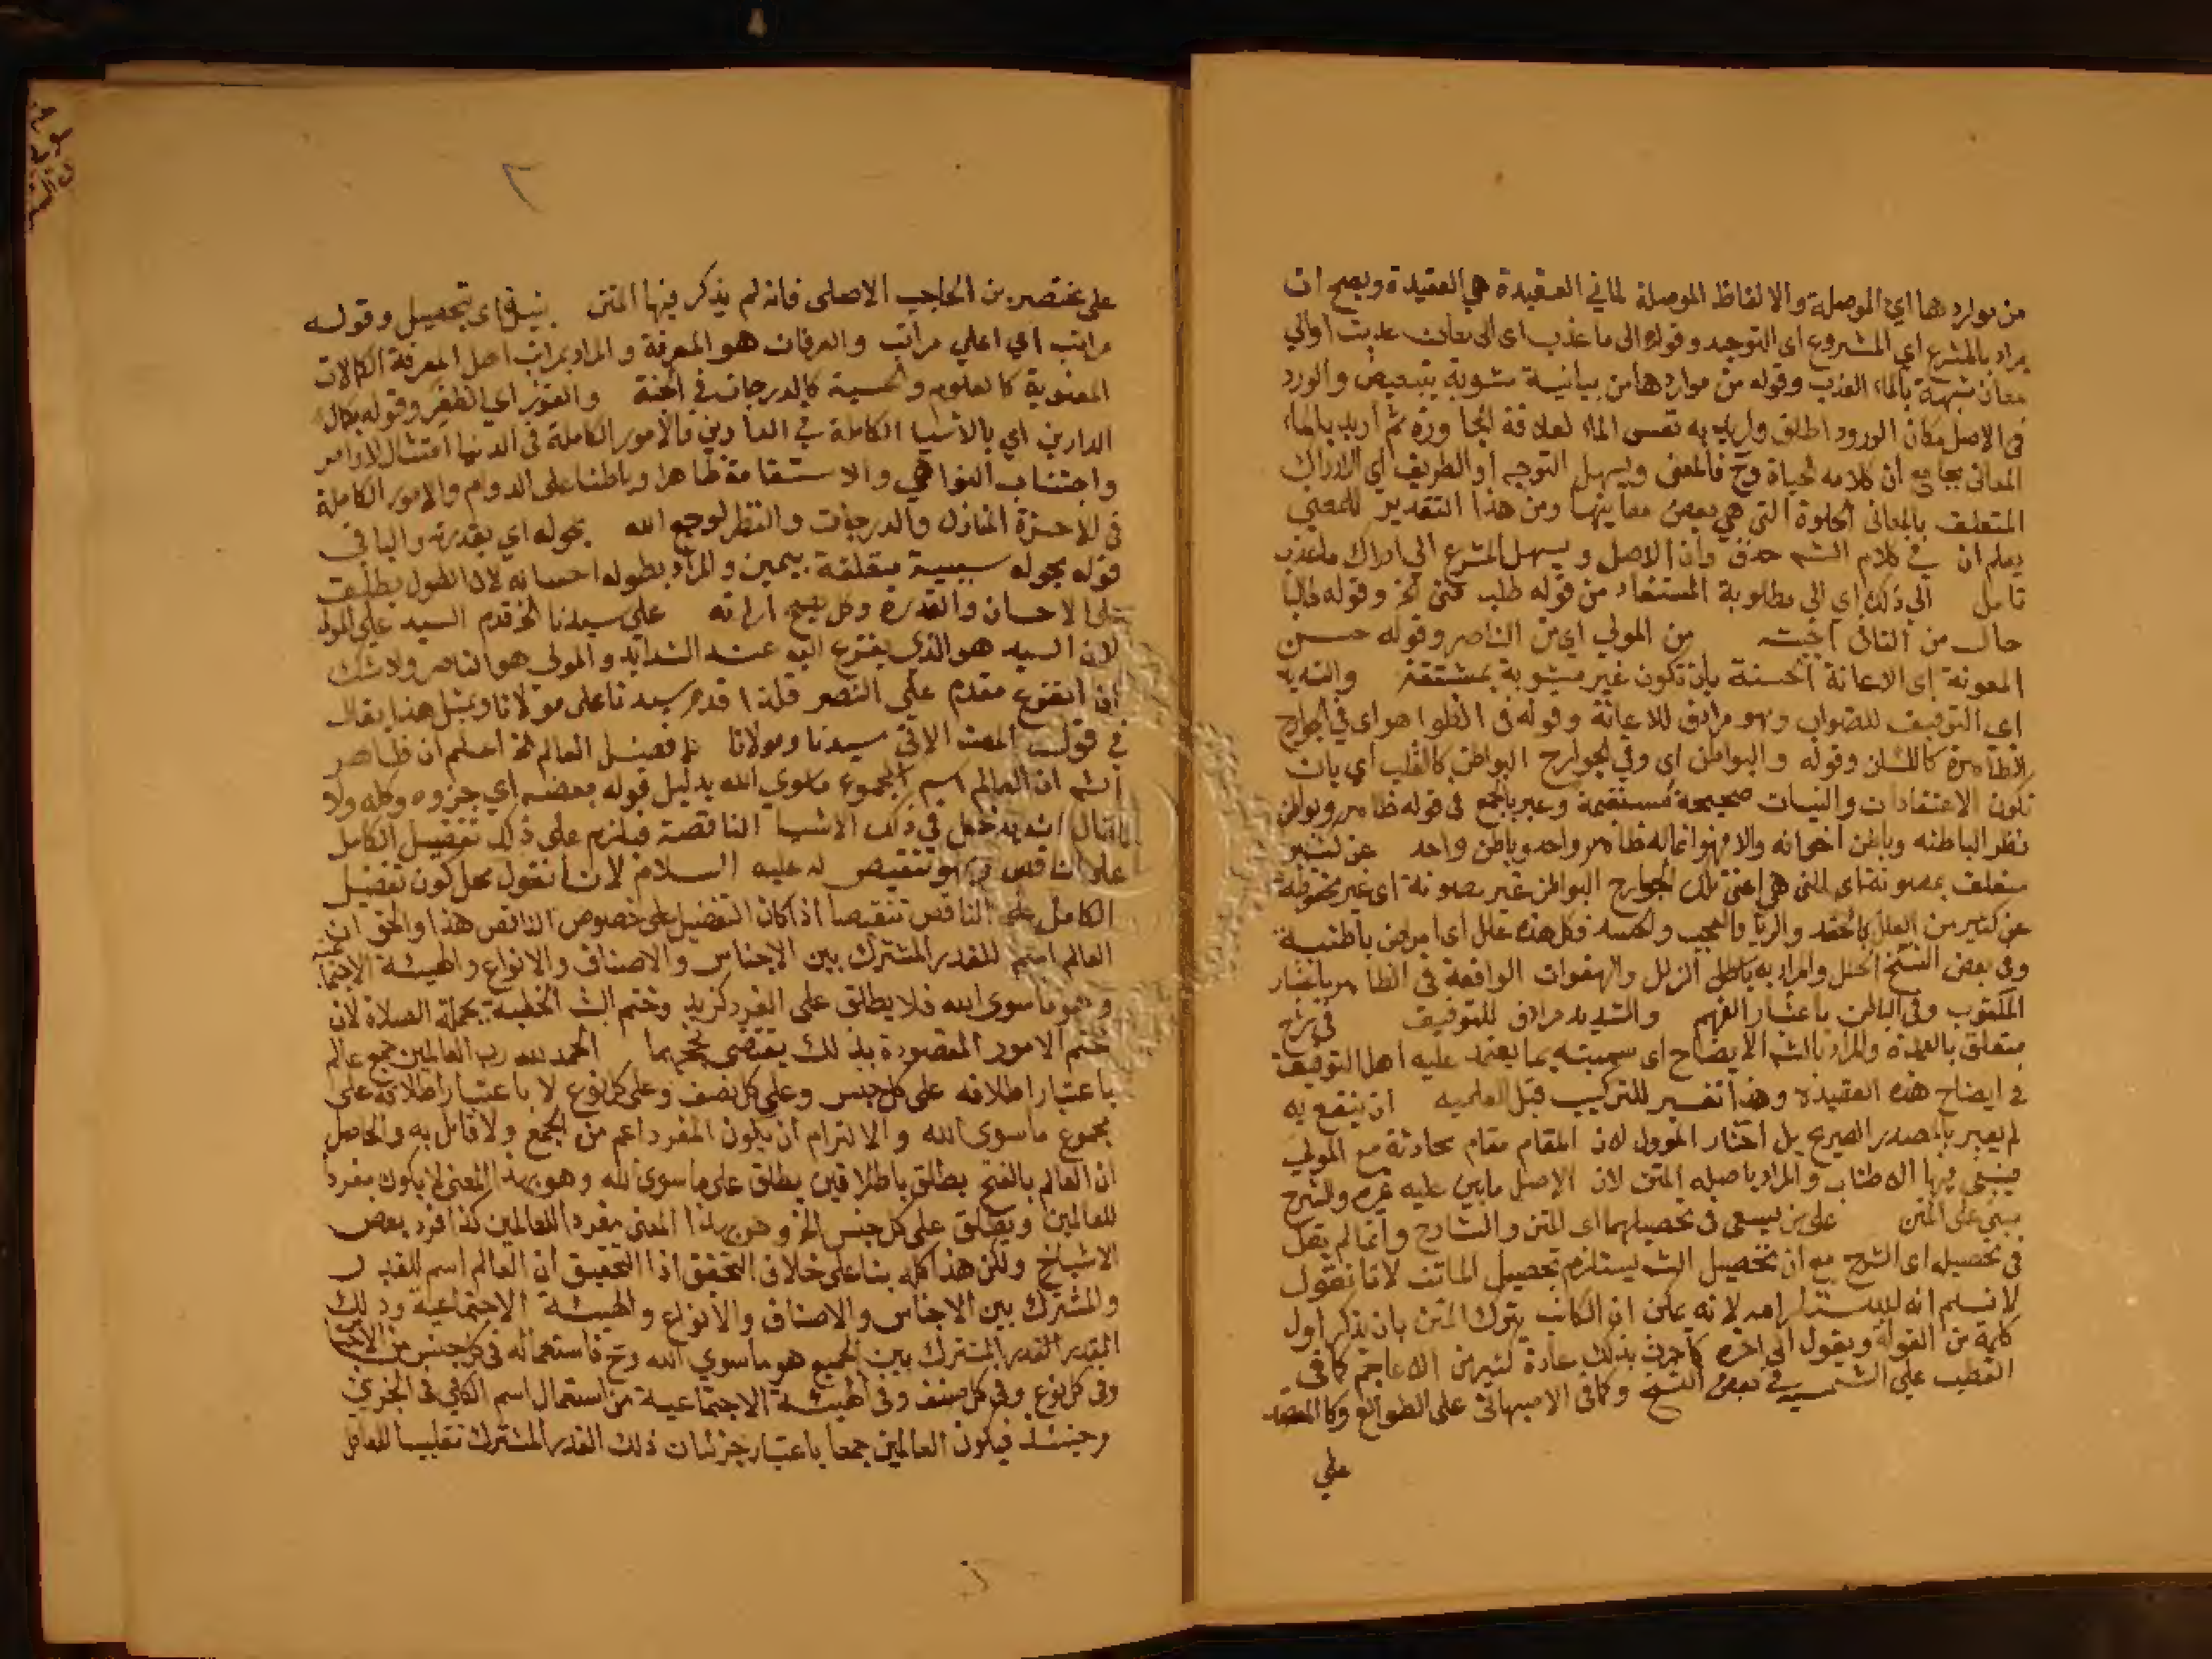 من مواردها اي الموصلة والالفاظ الموصلة لما في العقيدة هي العقيدة ويصح ان
يراد بالمشرع اي المشروع اي التوحيد وقوله الى ما عذب اي الى معان عذبت اوالي
معان شبهة بالماء العذب وقوله من مواردها من بيانية مشوبة بتبعيض والورد
في الاصل مكان الورود اطلق واريد به نفس الماء لعلاقة المجاورة ثم اريد بالماء
المعاني بجامع ان كلا به حياة وح فالمعنى ويسهل التوجه او الطريق اي الادراك
المتعلق بالمعاني الحلوة التي هي بعض معانيها ومن هذا التقدير للمعنى
يعلم ان في كلام الشم حذف وان الاصل ويسهل المشرع الى ادراك ما عذب
تامل الي ذلك اي الى مطلوبة المستفاد من قوله طلب مني الخ وقوله طالبا
حال من التاني اجبته من المولي اي من الناصر وقوله حسن
المعونة اي الاعانة الحسنة بان تكون غير مشوبة بمشقة والتسديد
اي التوفيف للصواب وهو مرادف للاعانة وقوله في الظواهر اي في الجوارح
الظاهرة كاللسان وقوله والبواطن اي وفي الجوارح البواطن كالقلب اي بان
تكون الاعتقادات والنيات صحيحة مستقيمة وعبر بالجمع في قوله ظاهر وبواطن
نظر الباطنه وباطن اخوانه والا فهو انما له ظاهر واحد وباطن واحد عن كثير
متعلق بمصونة اي التي هي اعني تلك الجوارح البواطن غير مصونة اي غير محفوظة
عن كثير من العلل كالحقد والريا والعجب والحسد فكل هذه علل اي امراض باطنية
وفي بعض النسخ الخلل والمراد به باطل الزلل والهفوات الواقعة في الظاهر باعتبار
المكتوب وفي الباطن باعتبار الفهم والتسديد مرادف للتوفيق في شرح
متعلق بالعمدة والمراد بالشم الايضاح اي سميته بما يعتمد عليه اهل التوفيق
في ايضاح هذه العقيدة وهذا تفسير للتركيب قبل العلميه ان ينفع به
لم يعبر بالمصدر الصريح بل اختار المؤول لان المقام مقام محادثة مع المولي
فينبغي فيها الاطناب والمراد باصله المتن لان الاصل ما بني عليه غيره والشرح
مبني على المتن على من يسعى في تحصيلهما اي المتن والشارح وانما لم يقل
في تحصيله اي الشرح مع ان تحصيل الشم يستلزم تحصيل الماتن لانا نقول
لا نسلم انه ليستلزامه لانه يمكن ان الكاتب يترك المتن بان يذكر اول
كلمة من القولة ويقول الى اخره كما جرت بذلك عادة كثير من الاعاجم كما في
القطب علي الشمسيه في بعض النسخ وكما في الاصبهاني على الطوالع وكالعضد
علي
٢
على مختصر بن الحاجب الاصلى فانه لم يذكر فيها المتن بنيل اي تحصيل وقوله
مراتب اي اعلي مراتب والعرفان هو المعرفة والمراد بمراتب اهل المعرفة الكمالات
المعنوية كالعلوم والحسية كالدرجات في الجنة والفوز اي الظفر وقوله بكمال
الدارين اي بالاشيا الكاملة في الدارين فالامور الكاملة في الدنيا امتثال الاوامر
واجتناب النواهي والاستقامة ظاهرا وباطنا على الدوام والامور الكاملة
في الاخرة المنازل والدرجات والنظر لوجه الله بحوله اي بقدرته والبا في
قوله بحوله سببية متعلقة بيمين والمراد بطوله احسانه لان الطول يطلق
على الاحسان والقدرة وكل يصح ارادته علي سيدنا الخ قدم السيد علي المولى
لان السيد هو الذي يفزع اليه عند الشدايد والمولى هو الناصر ولا شك
ان الفزع مقدم علي النصر فلذا قدم سيدنا على مولانا وبمثل هذا يقال
في قول المصنف الاتي سيدنا ومولانا فضل العالم الخ اعلم ان ظاهر
الشم ان العالم اسم لمجموع ماسوي الله بدليل قوله بعضه اي جزوه وكله ولا
يقال انه يدخل في ذلك الاشيا الناقصة فيلزم على ذلك تفضيل الكامل
على الناقص وهو تنقيص له عليه السلام لانا نقول محل كون تفضيل
الكامل على الناقص تنقيصا اذا كان التفضيل على خصوص الناقص هذا والحق ان
العالم اسم للقدر المشترك بين الاجناس والاصناف والانواع والهيئة الاجتماعية
وهو ما سوى الله فلا يطلق على الفرد كزيد وختم الشم الخطبة بجملة الصلاة لان
ختم الامور المقصودة بذلك يقتضي نجحها الحمد لله رب العالمين جمع عالم
باعتبار اطلاقه على كل جنس وعلى كل صنف وعلى كل نوع لا باعتبار اطلاقه على
مجموع ماسوى الله والا لزم ان يكون المفرد اعم من الجمع ولا قائل به والحاصل
ان العالم بالفتح يطلق باطلاقين يطلق على ماسوى الله وهو بهذا المعنى لا يكون مفرد
للعالمين ويطلق على كل جنس الخ وهو بهذا المعنى مفرد للعالمين كذا قرر بعض
الاشياخ ولكن هذا كله بنا على خلاف التحقق اذا التحقيق ان العالم اسم للقدر
والمشترك بين الاجناس والاصناف والانواع والهيئة الاجتماعية وذلك
القدر المشترك بين الجميع هو ماسوي الله وح فاستعماله في كل جنس من الاجناس
وفي كل نوع وفي كل صنف وفي الهيئة الاجتماعية من استعمال اسم الكلي في الجزئي
وحينئذ فيكون العالمين جمعا باعتبار جزئيات ذلك القدر المشترك تغليبا للعاقل